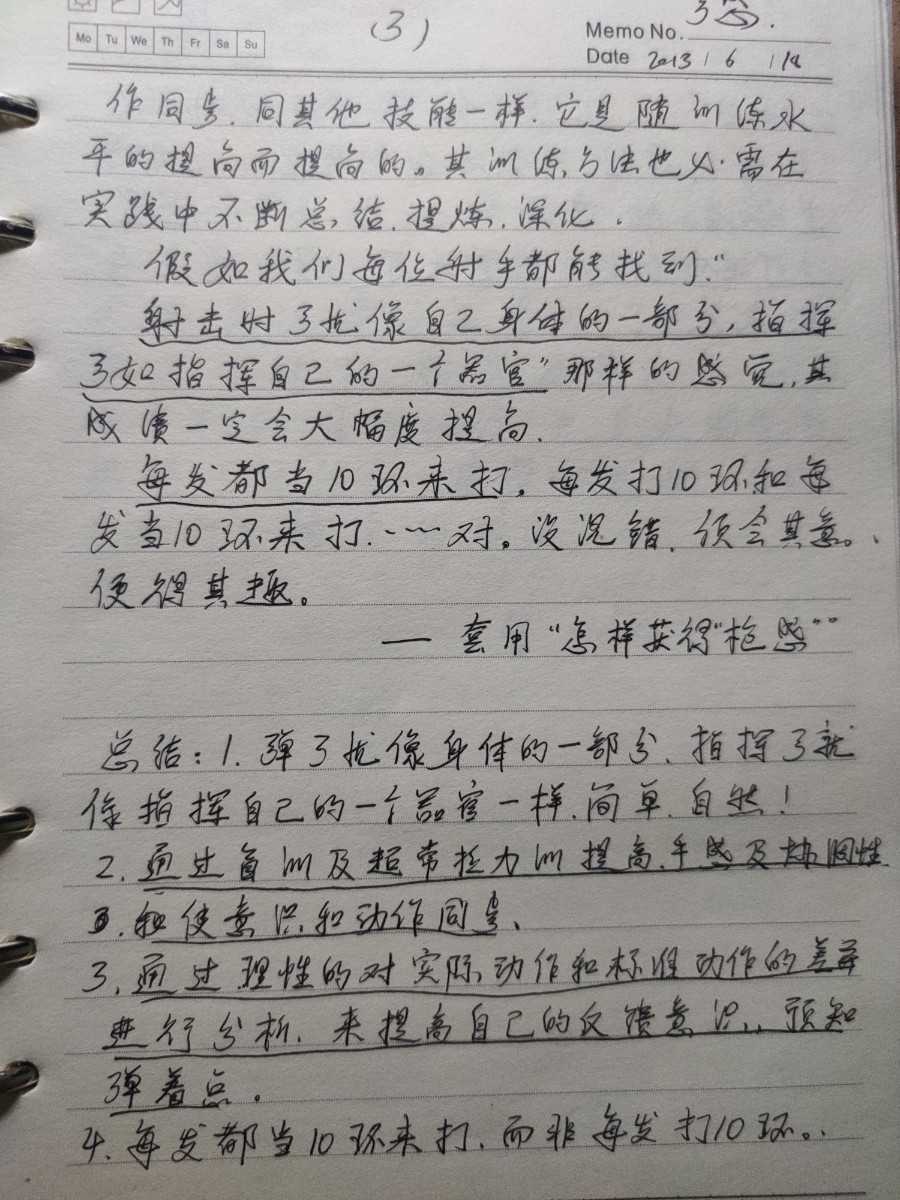 (3)
Memo No.
Mo Tu We Th Fr Sa Su
Date 2013 / 6 / 18
作同步,同其他技能一样,它是随训练水
平的提高而提高的。其训练方法也必需在
实践中不断总结,提炼,深化.
假如我们每位射手都能找到:"
射击时弓就像自己身体的一部分,指挥
弓如指挥自己的一个器官"那样的感觉,其
成绩一定会大幅度提高.
每发都当10环来打。每发打10环和每
发当10环来打……对。没说错,领会其意。
便得其趣。
— 套用"怎样获得"枪感""
总结:1. 弹弓就像身体的一部分,指挥弓就
像指挥自己的一个器官一样,简单,自然!
2. 通过盲训及超常拉力训提高手感及协调性
和使意识和动作同步、
3. 通过理性的对实际动作和标准动作的差异
进行分析,来提高自己的反馈意识,预知
弹着点。
4. 每发都当10环来打,而非每发打10环。